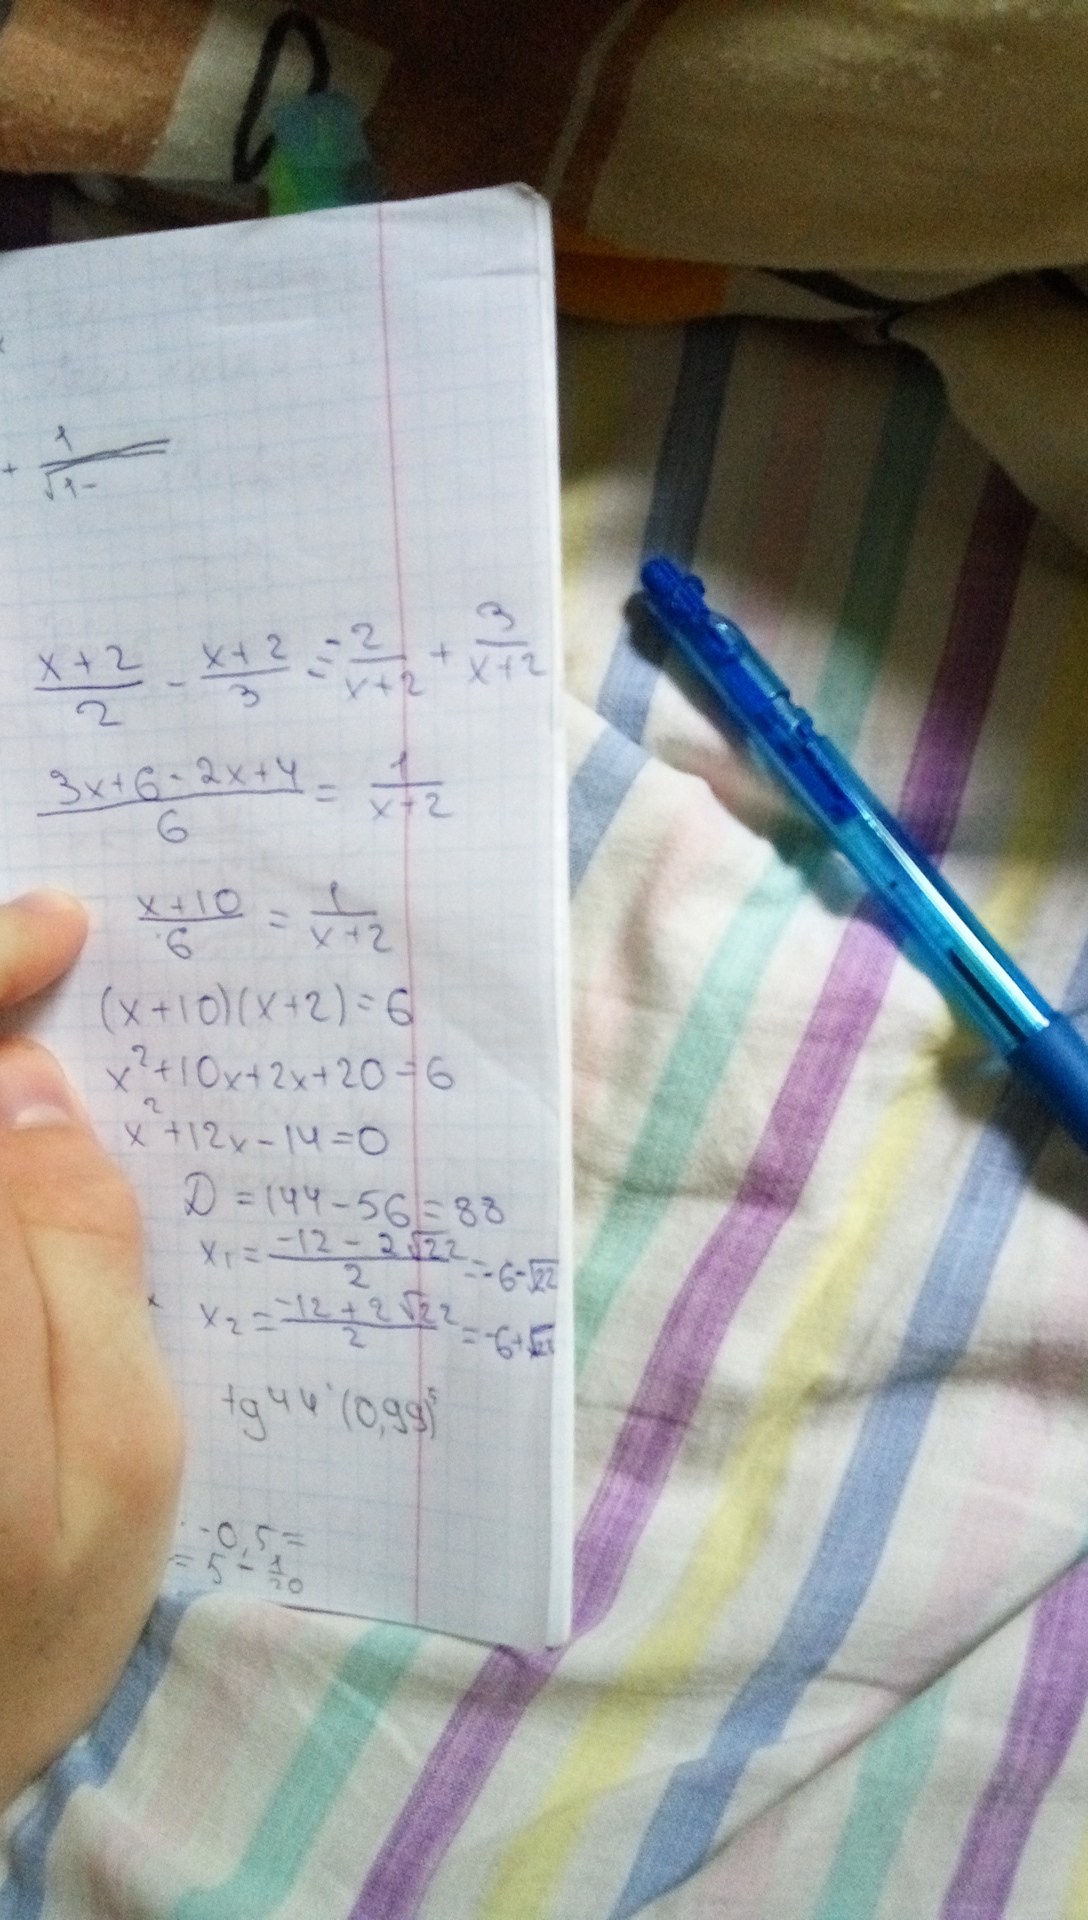 + 1/√1-
(x+2)/2 - (x+2)/3 = -2/(x+2) + 3/(x+2)
(3x+6-2x+4)/6 = 1/(x+2)
(x+10)/6 = 1/(x+2)
(x+10)(x+2)=6
x²+10x+2x+20=6
x²+12x-14=0
D=144-56=88
x₁=(-12-2√22)/2=-6-√22
x₂=(-12+2√22)/2=-6+√22
tg44° (0,99)⁵
-0,5=
= 5 - 1/20